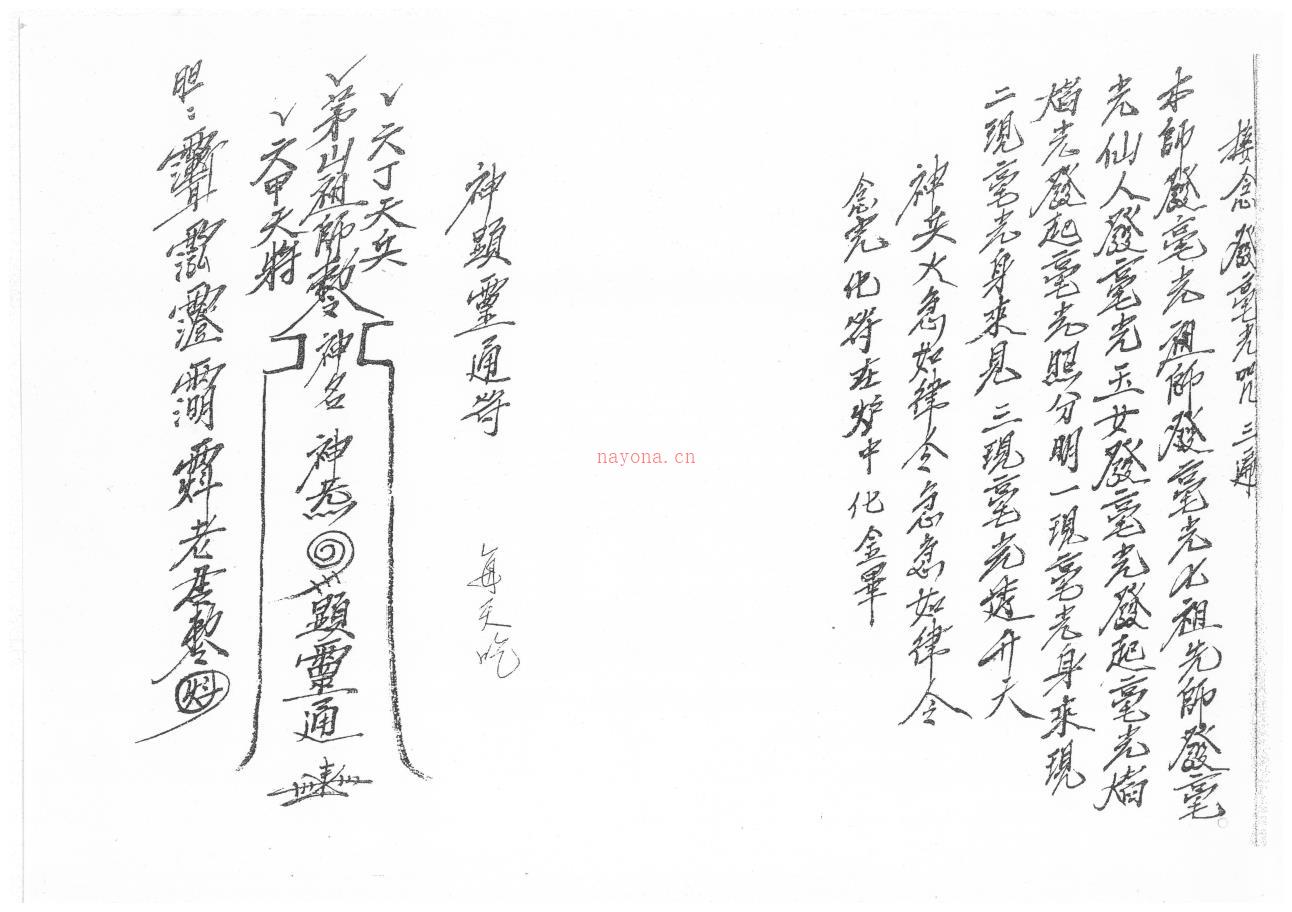 接念發毫光咒三遍
本師發毫光祖師發毫光七祖先師發毫
光仙人發毫光玉女發毫光發起毫光熖
熖光發起毫光照分明一現毫光身來現
二現毫光身來見三現毫光透開天
神兵火急如律令急急如律令
念完化符在炉中化金畢
神顯靈通符
每天吃
天丁天兵
茅山祖師勅令
六甲天將
神名
顯靈通
胆:
老君勅令
nayona.cn